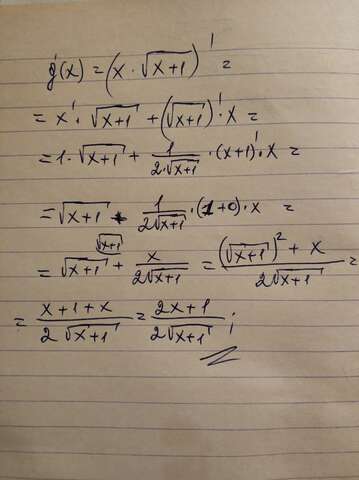 g'(x) = (x · √(x+1))' =
= x' · √(x+1) + (√(x+1))' · x =
= 1 · √(x+1) + 1/(2·√(x+1)) · (x+1)' · x =
= √(x+1) + 1/(2√(x+1)) · (1+0) · x =
= √(x+1) ^(√(x+1)) + x/(2√(x+1)) = ((√(x+1))² + x)/(2√(x+1)) =
= (x+1+x)/(2√(x+1)) = (2x+1)/(2√(x+1)) ;